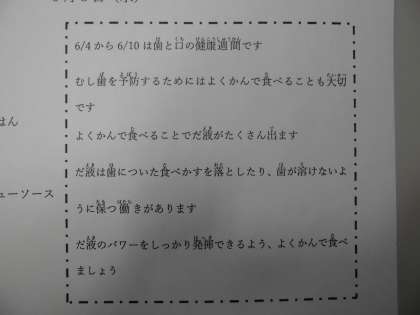 6/4から6/10は歯と口の健康週間です
むし歯を予防するためにはよくかんで食べることも大切
です
よくかんで食べることでだ液がたくさん出ます
だ液は歯についた食べかすを落としたり、歯が溶けないよ
うに保つ働きがあります
だ液のパワーをしっかり発揮できるよう、よくかんで食べ
ましょう
はん
ューソース